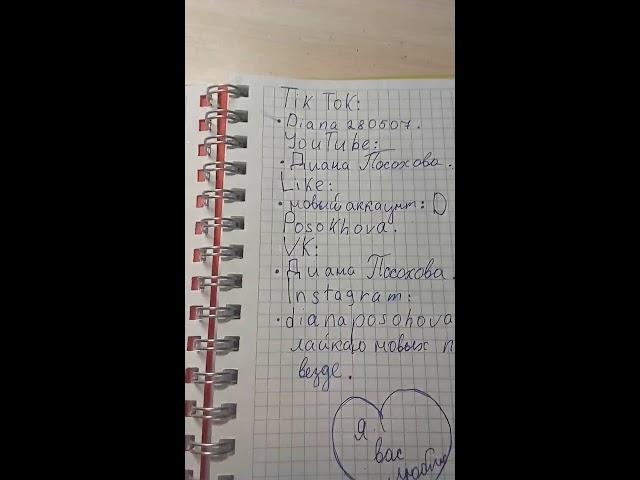 Tik Tok:
• Diana 280507.
YouTube:
• Диана Посохова.
Like:
• новый аккаунт: D
Posokhova.
VK:
• Диана Посохова.
Instagram:
• dianaposohova
лайкаю новых п
везде.
Я
вас
люблю